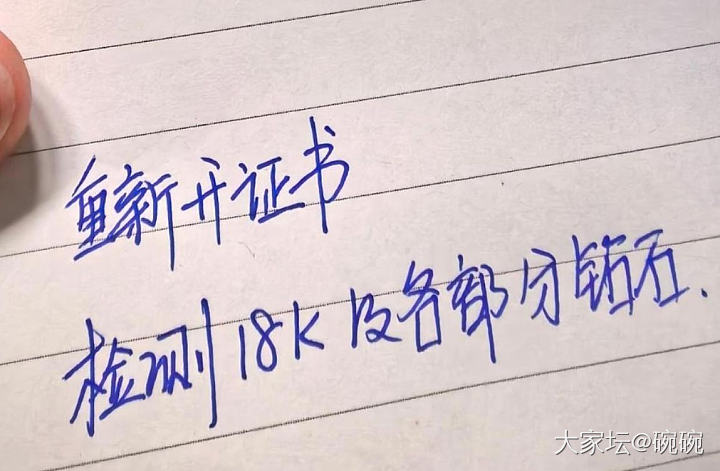 重新开证书
检测18K及各部分钻石.
大家坛@碗碗